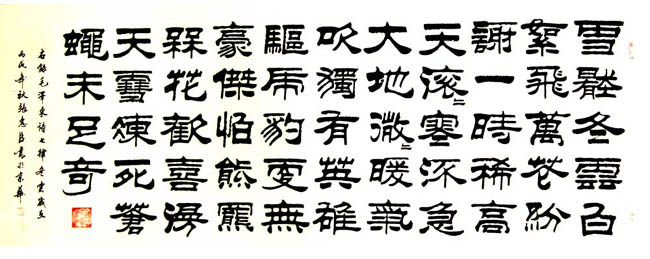 雪壓冬雲白
絮飛萬花紛
謝一時稀高
天滾〻寒流急
大地微〻暖氣
吹獨有英雄
驅虎豹更無
豪傑怕熊羆
槑花歡喜漫
天雪凍死蒼
蠅未足奇
右錄毛澤東詩七律冬雲歲在
丙戌年秋張書於京華